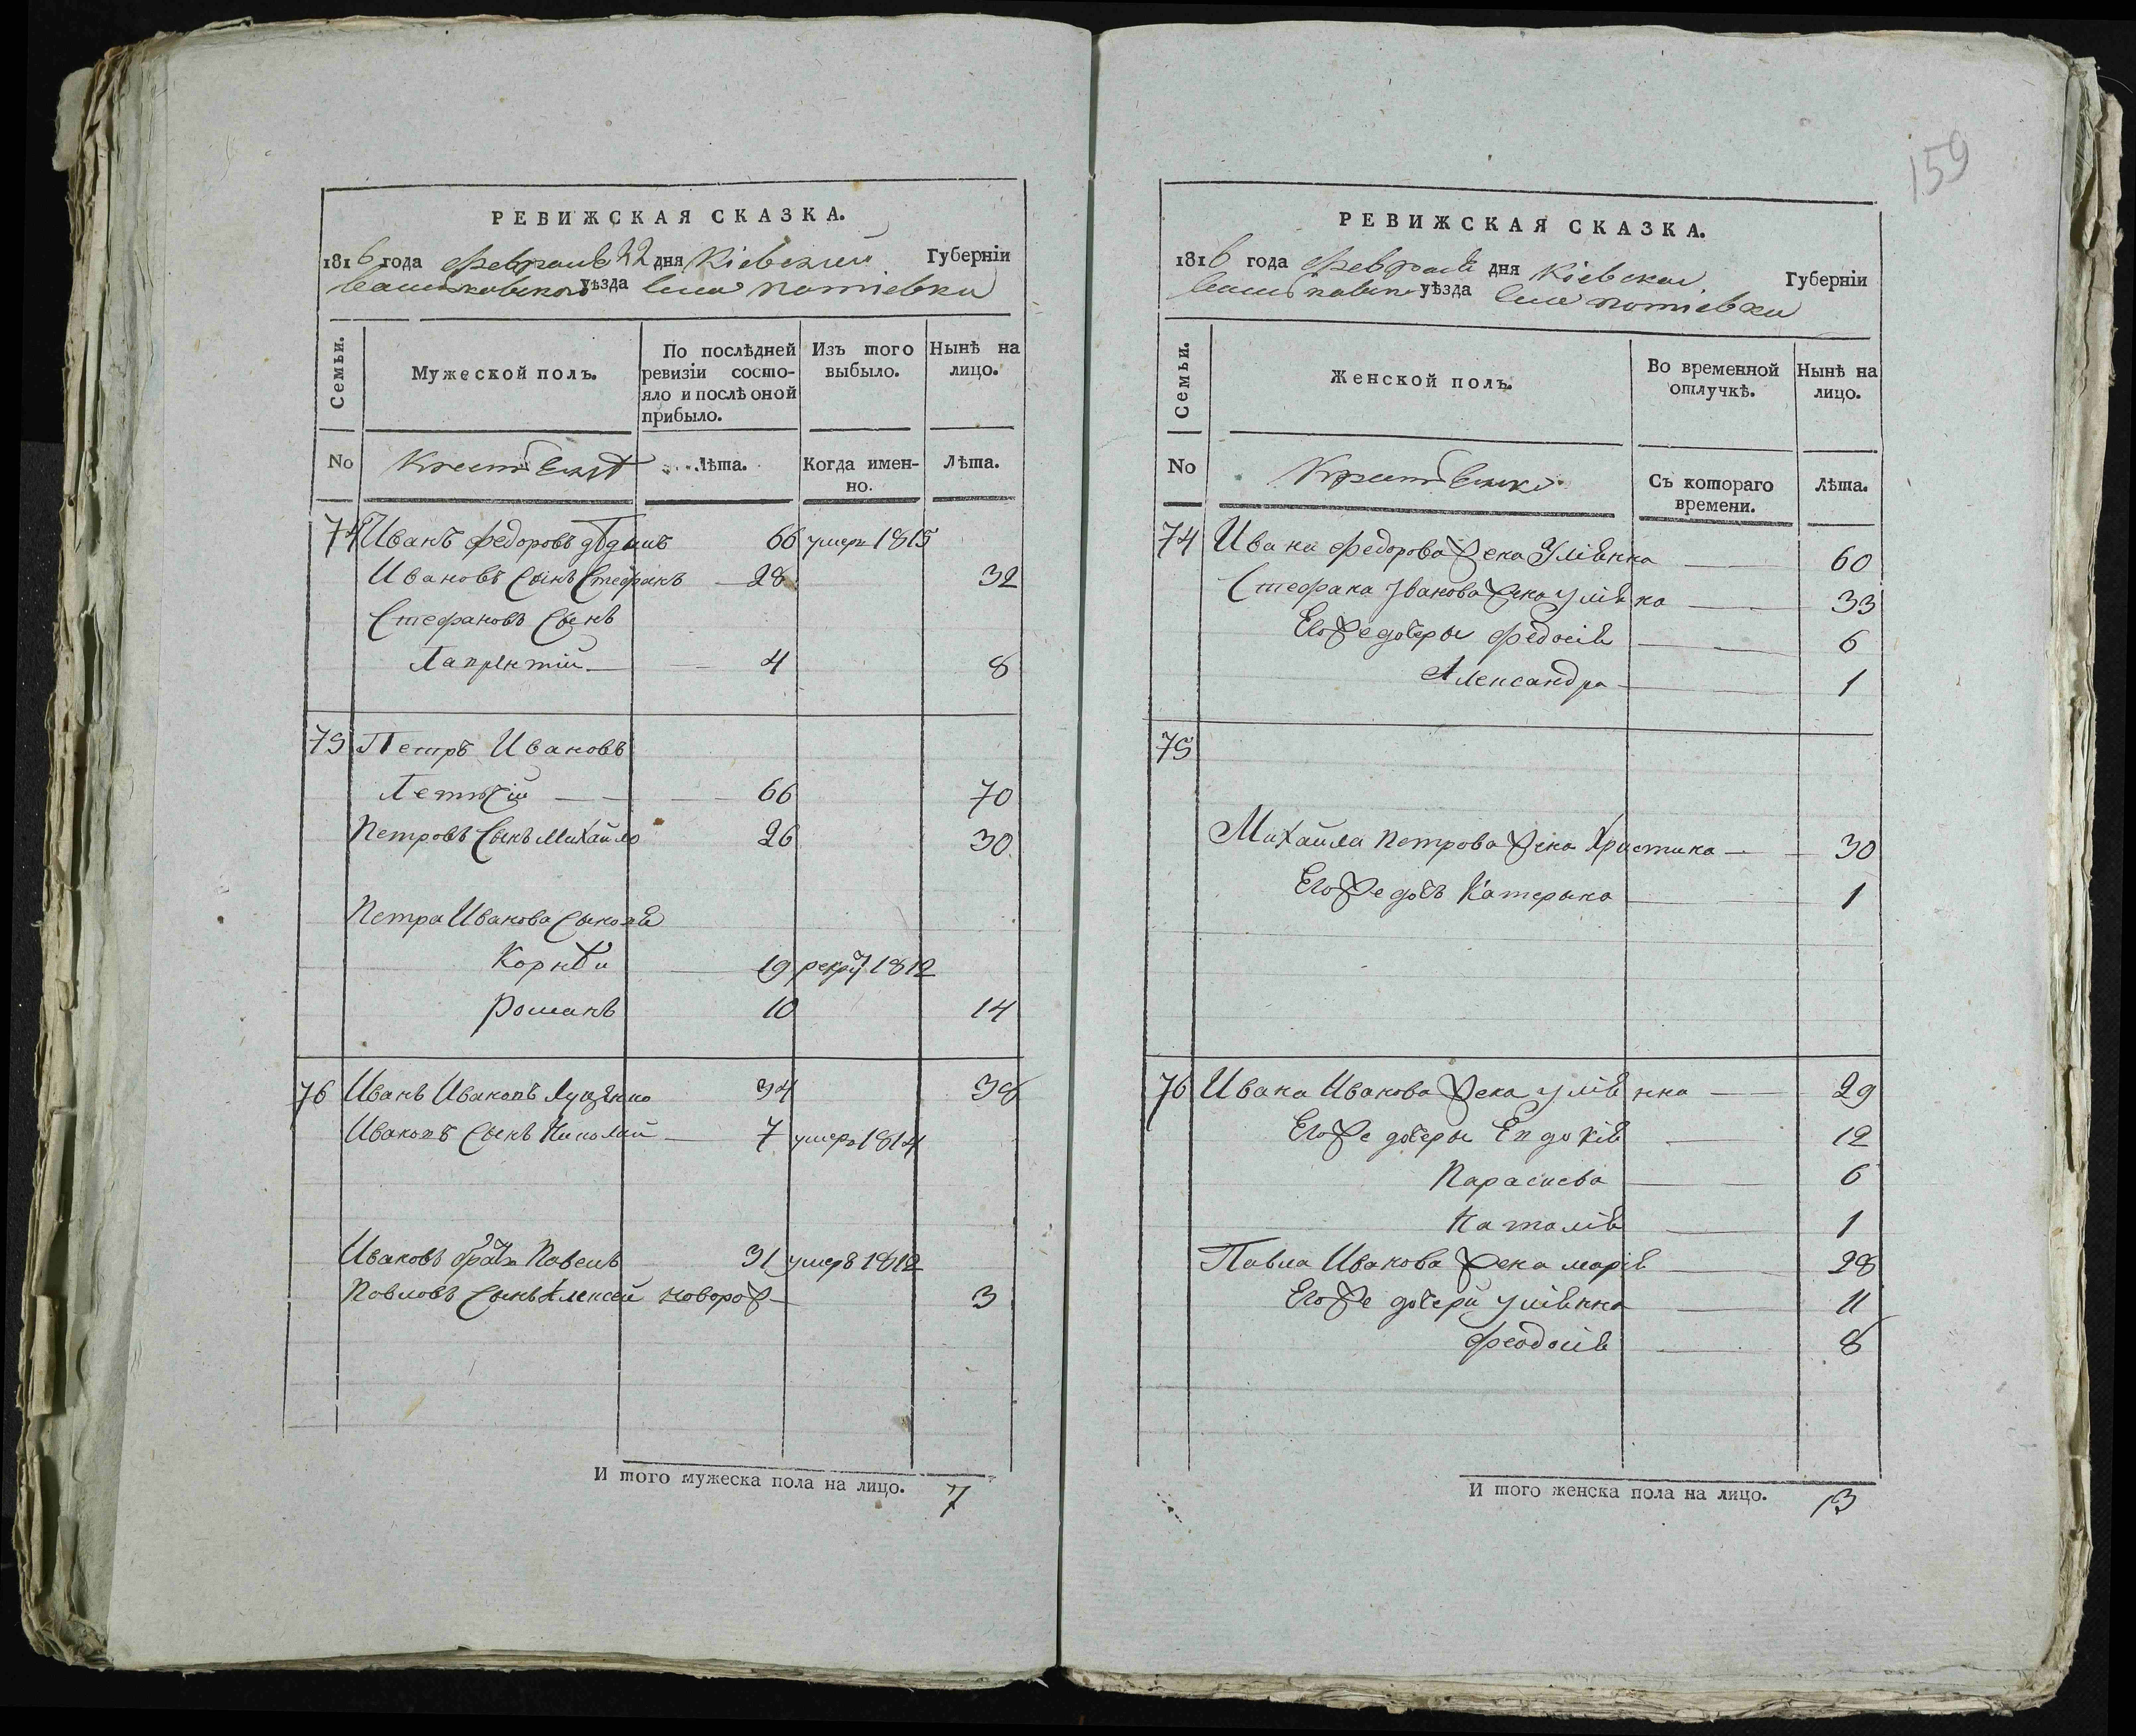 РЕВИЖСКАЯ СКАЗКА.
1816 года февраля 22 дня Кіевской Губерніи
Васильковского уѣзда села потіевки
Семьи. Мужеской полъ. По послѣдней ревизіи состояло и послѣ оной прибыло. Изъ того выбыло. Нынѣ на лицо.
No Лѣта. Когда именно. Лѣта.
74 Иванъ федоровъ 66 умеръ 1815
Ивановъ Сынъ Стефанъ 28 32
Стефановъ Сынъ
Лаврентій 4 8
75 Петръ Ивановъ
66 70
Петровъ Сынъ Михайло 26 30
Петра Иванова Сыновя
Корнѣи 19 рекру 1812
Романъ 10 14
76 Иванъ Ивановъ Луценко 34 38
Ивановъ Сынъ Николай 7 умеръ 1814
Ивановъ братъ Павелъ 31 умеръ 1812
Павловъ Сынъ Алексей новорож 3
И того мужеска пола на лицо. 7
159
РЕВИЖСКАЯ СКАЗКА.
1816 года февраля дня Кіевской Губерніи
уѣзда села потіевки
Семьи. Женской полъ. Во временной отлучкѣ. Нынѣ на лицо.
No Съ котораго времени. Лѣта.
74 Ивана федорова жена Уліянна 60
Стефана Иванова жена уліяна 33
Егоже дочеры федосія 6
Александра 1
75
Михайла петрова жена Христина 30
Егоже дочь Катерына 1
76 Ивана Иванова жена уліянна 29
Егоже дочеры Евдокія 12
Параскева 6
Наталія 1
Павла Иванова жена марія 28
Егоже дочери уліянна 11
феодосія 8
И того женска пола на лицо. 13